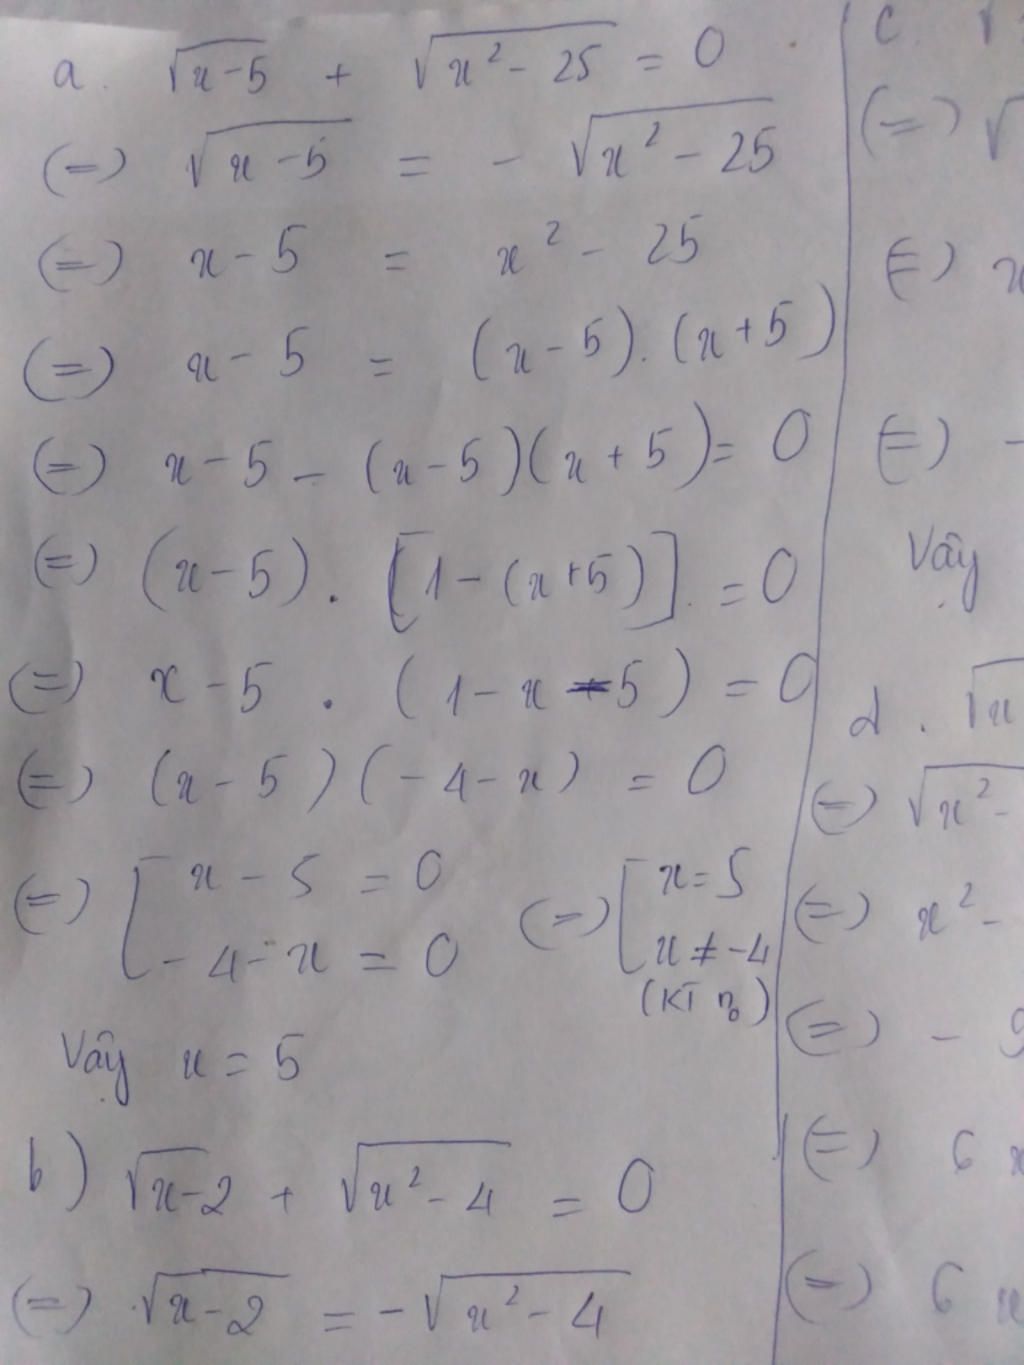 a. √x-5 + √x² - 25 = 0
(=) √x - 5 = - √x² - 25
(=) x - 5 = x² - 25
(=) x - 5 = (x - 5).(x + 5)
(=) x - 5 - (x - 5)(x + 5) = 0
(=) (x - 5) . [1 - (x + 5)] = 0
(=) x - 5 . (1 - x - 5) = 0
(=) (x - 5)(-4 - x) = 0
(=) [ x - 5 = 0 (=) [ x = 5
-4 - x = 0 x ≠ -4
Vậy x = 5
b) √x-2 + √x² - 4 = 0
(=) √x - 2 = - √x² - 4
c. √
(=) √
(=) x
(=) -
Vậy
d. √x
(=) √x² -
(=) x² -
(=) - 9
(=) 6 x
(=) 6 x